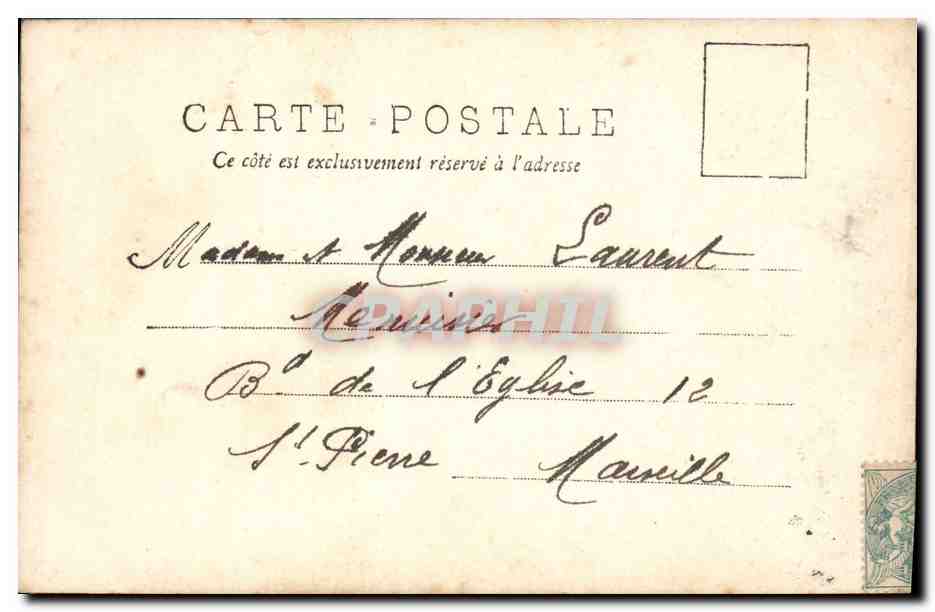 CARTE - POSTALE
Ce côté est exclusivement réservé à l'adresse
Madame et Monsieur Laurent
Menuisier
CPAPHIL
Bd de l'Eglise 12
St Pierre Marseille